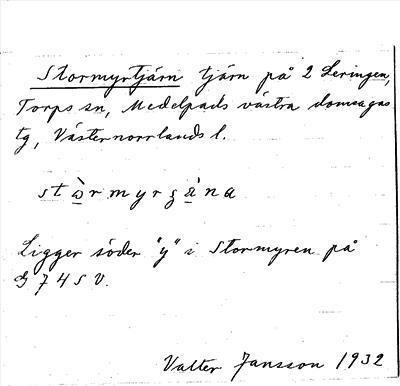 Stormyrtjärn tjärn på 2 Leringen,
Torps sn, Medelpads västra domsagas
tg, Västernorrlands l.
Ligger söder "y" i Stormyren på
74 SV.
Valter Jansson 1932